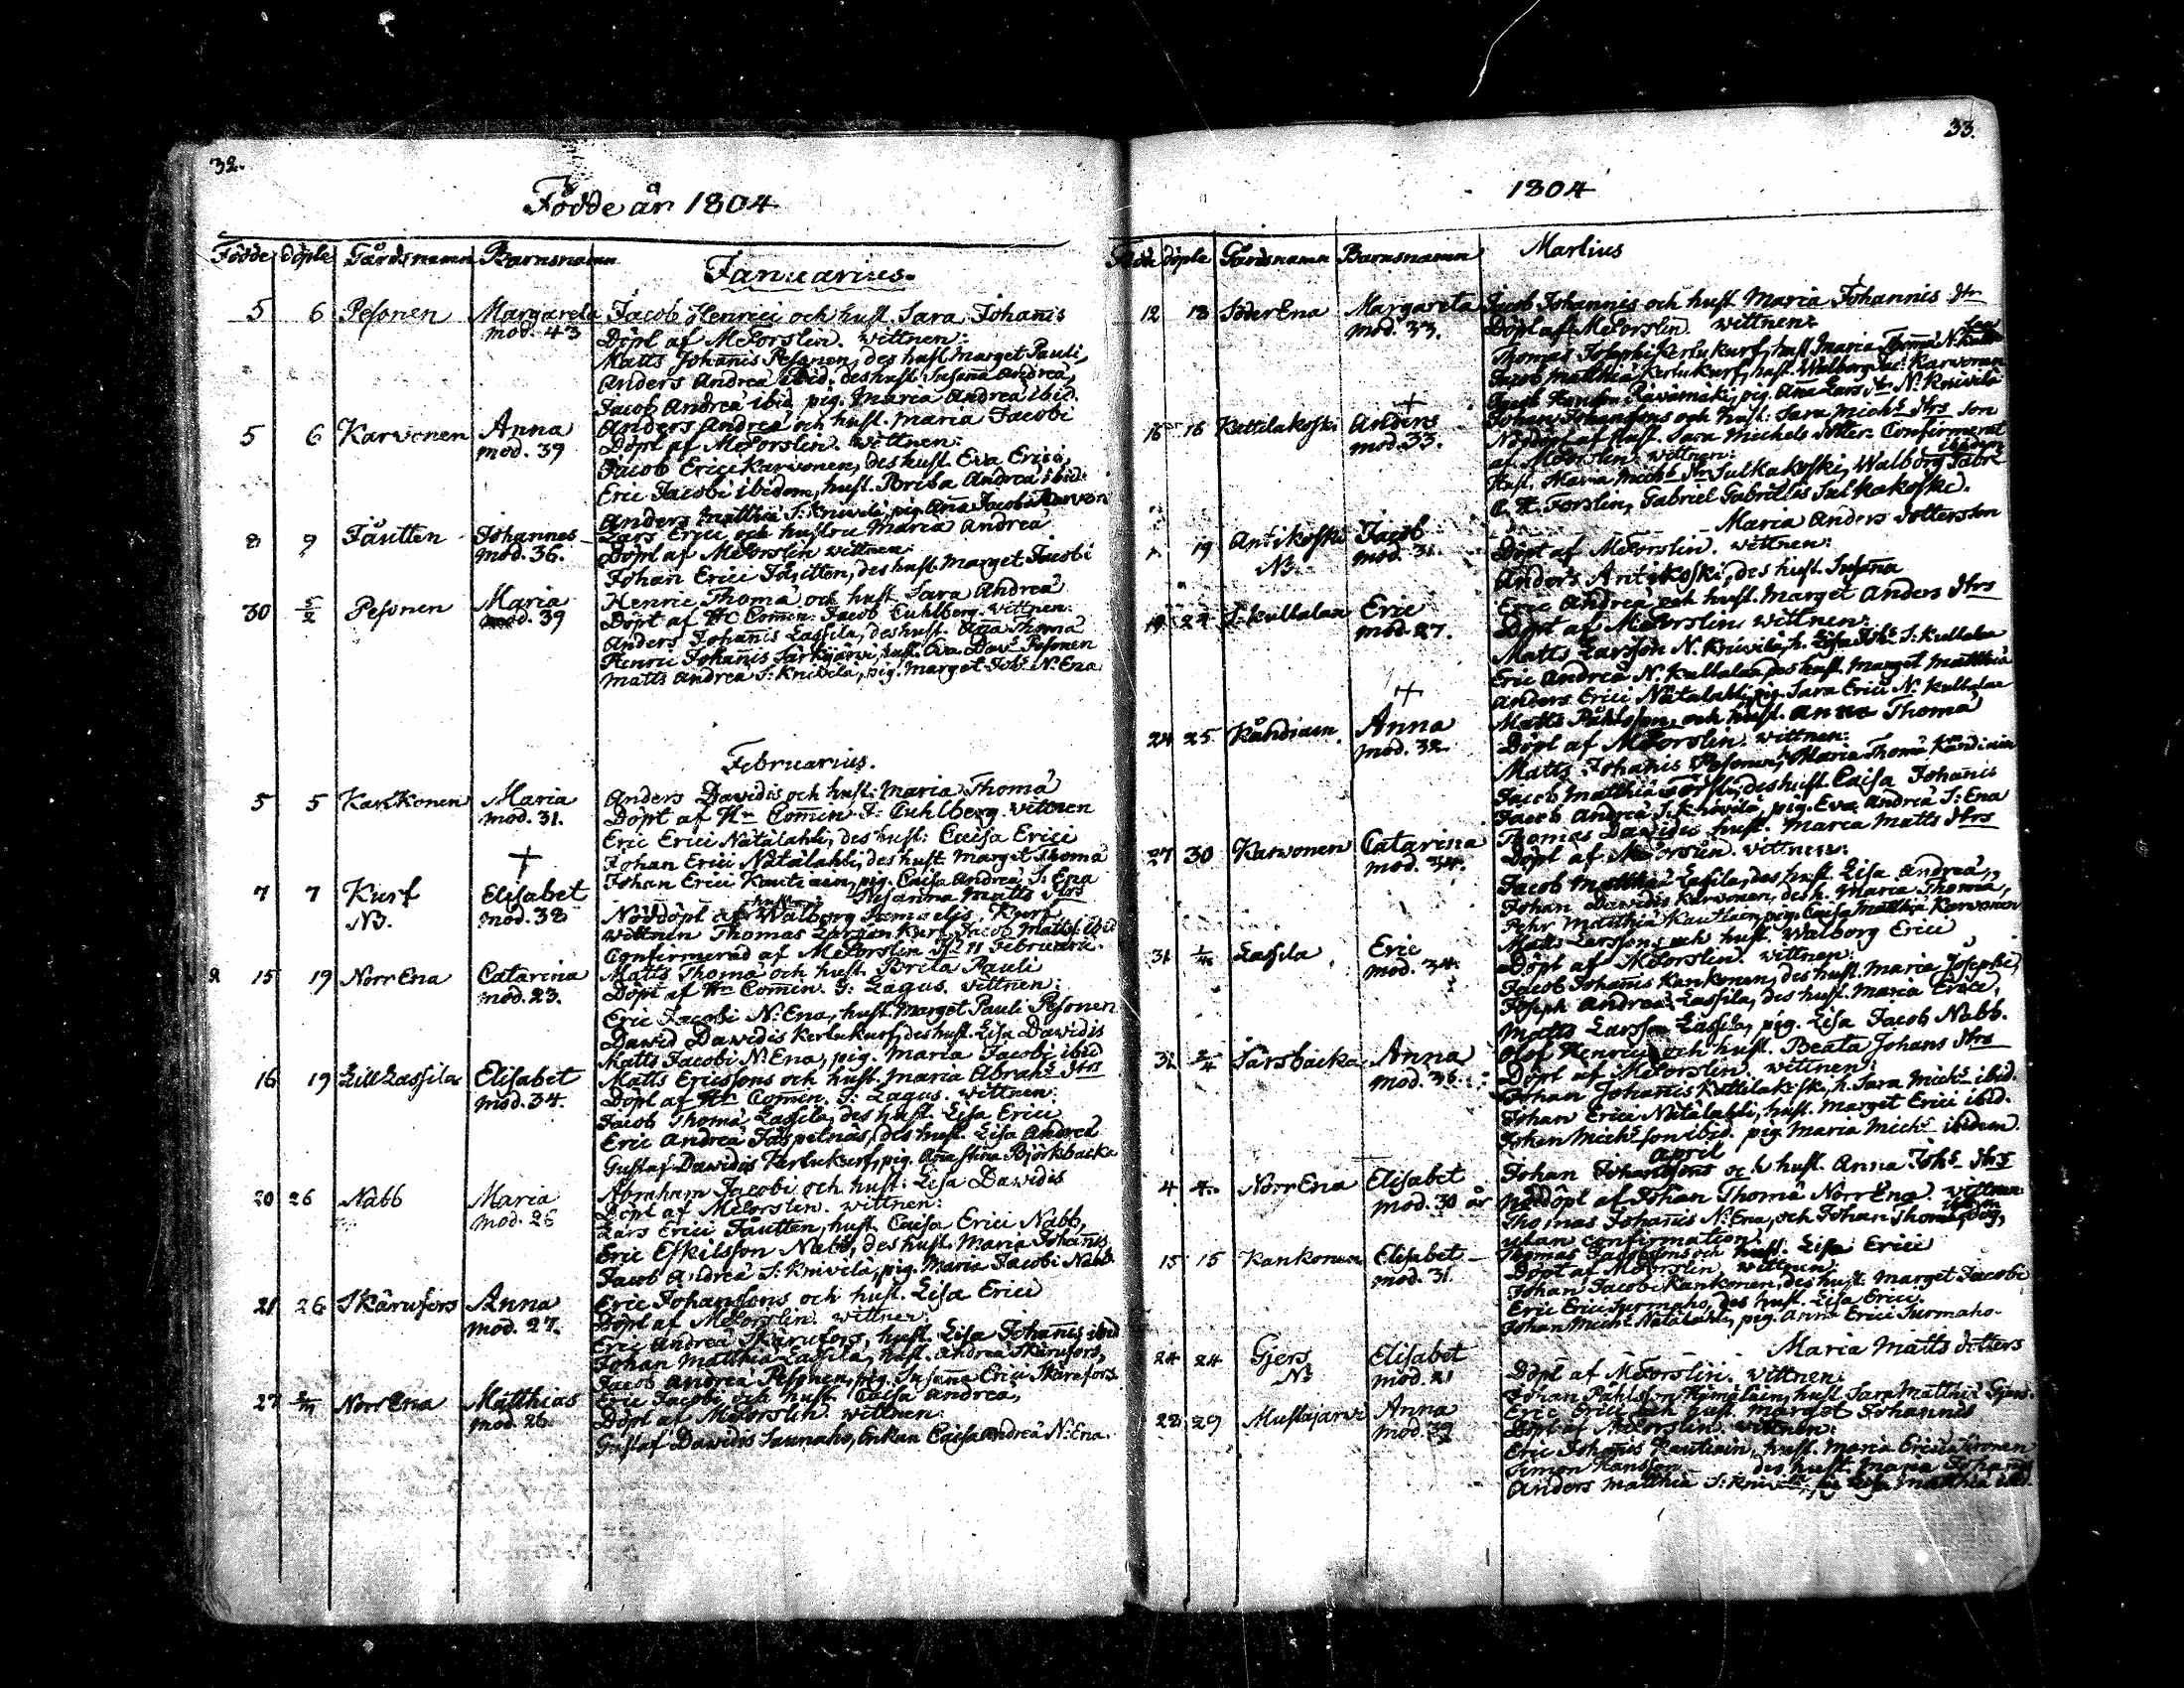 32.
Födde år 1804
Födde döpte Gårdsnamn Barnsnamn
Januarius.
5 6 Pesonen Margareta Jacob Henrici och hust. Sara Johanis
mod. 43 Döpt af M Forslin. Vittnen:
Matts Johanis Pesonen, des hust. Marget Pauli,
Anders Andreä ibid. des hust. Susana Andreä,
Jacob Andreä ibid. pig. Maria Andreä ibid.
5 6 Karvonen Anna Anders Andreä och hust. Maria Jacobi
mod. 39 Döpt af M Forslin. Vittnen:
Jacob Erici Karvonen, des hust. Eva Erici,
Eric Jacobi ibidem, hust. Brita Andreä ibid.
Anders Matthiä S. Knivilä, pig. Aña Jacobi Karvon
8 9 Jåutten Johannes Lars Erici och hustru Maria Andreä
mod. 36. Döpt af M Forslin Vittnen:
Johan Erici Jåutten, des hust. Marget Jacobi
30 5/2 Pesonen Maria Henric Thomä och hust. Sara Andreä
mod. 39 Döpt af Hr Comin: Jacob Cuhlberg. Vittnen:
Anders Johanis Lassila, des hust. Aña Thomä
Henric Johanis Särkijärvi, hust. Eva Dav. Pesonen
Matts Andreä S: Knivilä, pig. Marget Joh. N. Ena
Februarius.
5 5 Kankonen Maria Anders Davidis och hust: Maria Thomä
mod. 31. Döpt af Hr Comin: J: Cuhlberg. Vittnen
Eric Erici Nätälahti, des hust: Caisa Erici
Johan Erici Nätälahti, des hust. Marget Thomä
Johan Erici Kautiain, pig. Caisa Andreä S: Ena
+
Susanna Matts dtrs
7 7 Kurf Elisabet Nöddöpt af hustru Walborg Samuelis Kurf
NB. mod. 38 Vittnen Thomas Larsson Kurf, Jacob Mattss. ibid
Confirmerad af M Forslin d. 11 Februarii.
15 19 NorrEna Catarina Matts Thomä och hust. Brita Pauli
mod. 23. Döpt af Hr Comin. J: Lagus. Vittnen:
Eric Jacobi N: Ena, hust. Marget Pauli Pesonen
David Davidis Kertukurf, des hust. Lisa Davidis
Matts Jacobi N: Ena, pig. Maria Jacobi ibid
16 19 LillLassila Elisabet Matts Ericssons och hust. Maria Abrah. dtrs
mod. 34. Döpt af Hr Comin. J: Lagus. Vittnen:
Jacob Thomä Lassila, des hust. Lisa Erici
Eric Andreä Jäspelnäs, des hust. Lisa Andreä
Gustaf Davidis Kertukurf, pig. Aña Stina Björkbacka
20 26 Nabb Maria Abraham Jacobi och hust: Lisa Davidis
mod. 26 Döpt af M Forslin. Vittnen:
Lars Erici Jåutten, hust. Caisa Erici Nabb,
Eric Eskilsson Nabb, des hust. Maria Johanis
Jacob Andreä S: Knivilä, pig. Maria Jacobi Nabb
21 26 Skärufors Anna Eric Johanssons och hust. Lisa Erici
mod. 27. Döpt af M Forslin. Vittnen:
Eric Andreä Skärufors, hust. Lisa Johanis ibid
Johan Matthiä Lassila, hust. Andreä Skärufors,
Jacob Andreä Pesonen, pig. Susana Erici Skärufors.
27 2/3 NorrEna Matthias Eric Jacobi och hust. Caisa Andreä,
mod. 26. Döpt af M Forslin. Vittnen:
Gustaf Davidis Saunaho, Enkan Caisa Andreä N: Ena.
33.
1804
döpte Gårdsnamn Barnsnamn Martius
12 13 SöderEna Margareta Jacob Johannis och hust. Maria Johannis dtr
mod. 33. Döpt af M Forslin. Vittnen:
Thomas Josephi Kertukurf, hust. Maria Thomä N.
Jacob Matthiä Kertukurf, hust. Walborg Karvonen
pig. Aña Lars dtr N. Knivilä
+
16 16 Kattilakoski Anders Johan Johanssons och hust: Sara Mich. dtrs son
mod. 33. Nöddöpt af Hust. Sara Michels dotter. Confirmerat
af M Forslin. Vittnen:
Hust. Maria Mich. dtr Sulkakoski, Walborg Gabri ibidem
C. H. Forslin, Gabriel Gabrielis Sulkakoski.
Maria Anders dotters son
19 Antikoski Jacob Döpt af M Forslin. Vittnen:
NB. mod. 31. Anders Antikoski, des hust. Susaña
S: Kultalaa Eric Eric Andreä och hust. Marget Anders dtrs
mod. 27. Döpt af M Forslin Vittnen:
Matts Larsson N. Knivilä, h. Lisa Joh. S: Kultalaa
Eric Andreä N. Kultalaa, des hust. Marget Matthiä
Anders Erici Nätälahti, pig. Sara Erici N. Kultalaa
+
24 25 Kåndiain Anna Matts Påhlsson och hust. Anna Thomä
mod. 32. Döpt af M Forslin. Vittnen:
Matts Johanis Pesonen, Maria Thomä Kåndiain
Jacob Matthiä Torsti, des hust. Caisa Johanis
Jacob Andreä S. Knivilä, pig. Eva Andreä S: Ena
27 30 Karvonen Catarina Thomas Davidis hust. Maria Matts dtrs
mod. 34. Döpt af M Forslin. Vittnen:
Jacob Matthiä Lassila, des hust. Lisa Andreä,
Johan Davidis Karvonen, des h. Maria Thomä,
Pehr Matthiä Kautiaen, pig. Caisa Matthiä Karvonen
31 1/4 Lassila Eric Matts Larssons och hust. Walborg Erici
mod. 34. Döpt af M Forslin. Vittnen:
Jacob Johanis Kankonen, des hust. Maria Josephi,
Joseph Andreä Lassila, des hust. Maria Erici,
Matts Larsson Lassila, pig. Lisa Jacob Nabb.
31 2/4 Särsbacka Anna Olof Henrici och hust. Beata Johans dtrs
mod. 36. Döpt af M Forslin. Vittnen:
Johan Johanis Kattilakoski, h. Sara Mich. ibid.
Johan Erici Nätälahti, hust. Marget Erici ibid.
Johan Mich. son ibid. pig. Maria Mich. ibidem.
April
4 4. NorrEna Elisabet Johan Johanssons och hust. Anna Joh. dtrs
mod. 30 år Nöddöpt af Johan Thomä NorrEna. Vittnen
Thomas Johanis N: Ena, och Johan Thomä
utan confirmation.
15 15 Kankonen Elisabet Thomas Jacobsons och hust. Lisa Erici
mod. 31. Döpt af M Forslin. Vittnen:
Johan Jacobi Kankonen, des hust. Marget Jacobi
Eric Erici Surmaho, des hust. Lisa Erici.
Johan Mich. Nätälahti, pig. Anna Erici Surmaho.
Maria Matts dotters
24 24 Gjers Elisabet Döpt af M Forslin. Vittnen:
NB mod. 21 Johan Påhlsson Hämäläin, hust. Sara Matthiä Gjers.
28 29 Mustajärvi Anna Eric Erici och hust. Marget Johannis
mod. Döpt af M Forslin. Vittnen:
Eric Johanis Rautiain, hust. Maria Erici
Simon Hansson des hust. Maria Johanis
Anders Matthiä S: Knivilä, pig Lisa Matthiä ibid.